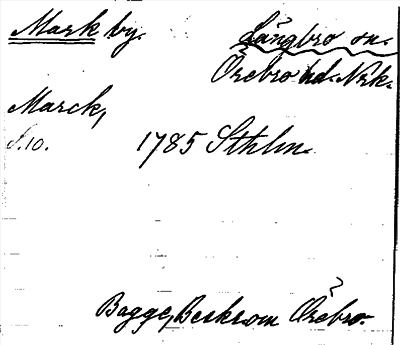 Mark by. Långbro sn.
Örebro hd. Nrk.
Marck,
S.10. 1785 Sthlm.
Bagge, Beskr. om Örebro.